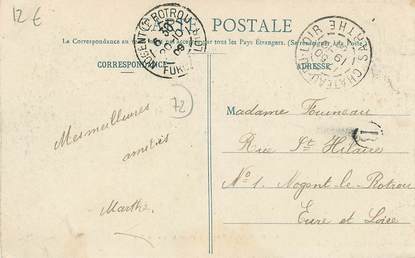 12 €
CARTE POSTALE
La Correspondance au recto n'est pas acceptée par tous les Pays Étrangers. (Se renseigner à la Poste)
CORRESPONDANCE
ADRESSE
CHATEAU-DU-LOIR SARTHE
72
Mes meilleures
amitiés
Marthe
Madame Fouineau
Rue St Hilaire
No 1. Nogent-le-Rotrou
Eure et Loire